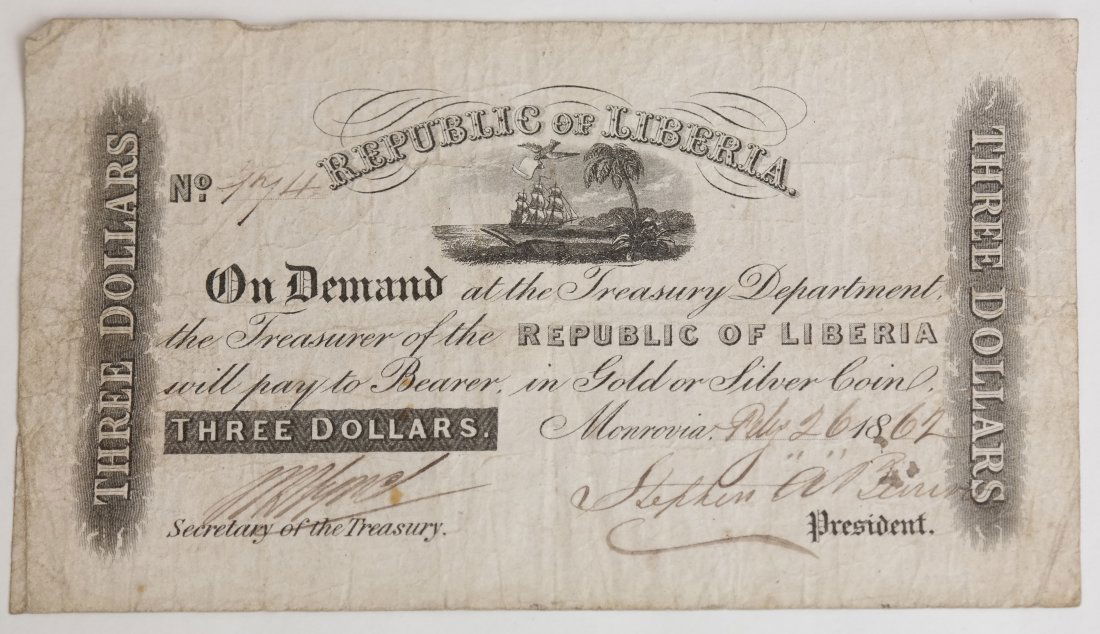 REPUBLIC OF LIBERIA.
THREE DOLLARS
No.
On Demand at the Treasury Department,
the Treasurer of the REPUBLIC OF LIBERIA
will pay to Bearer, in Gold or Silver Coin,
THREE DOLLARS.
Monrovia, Feby 26 1862
Stephen A Benson
Secretary of the Treasury.
President.
THREE DOLLARS